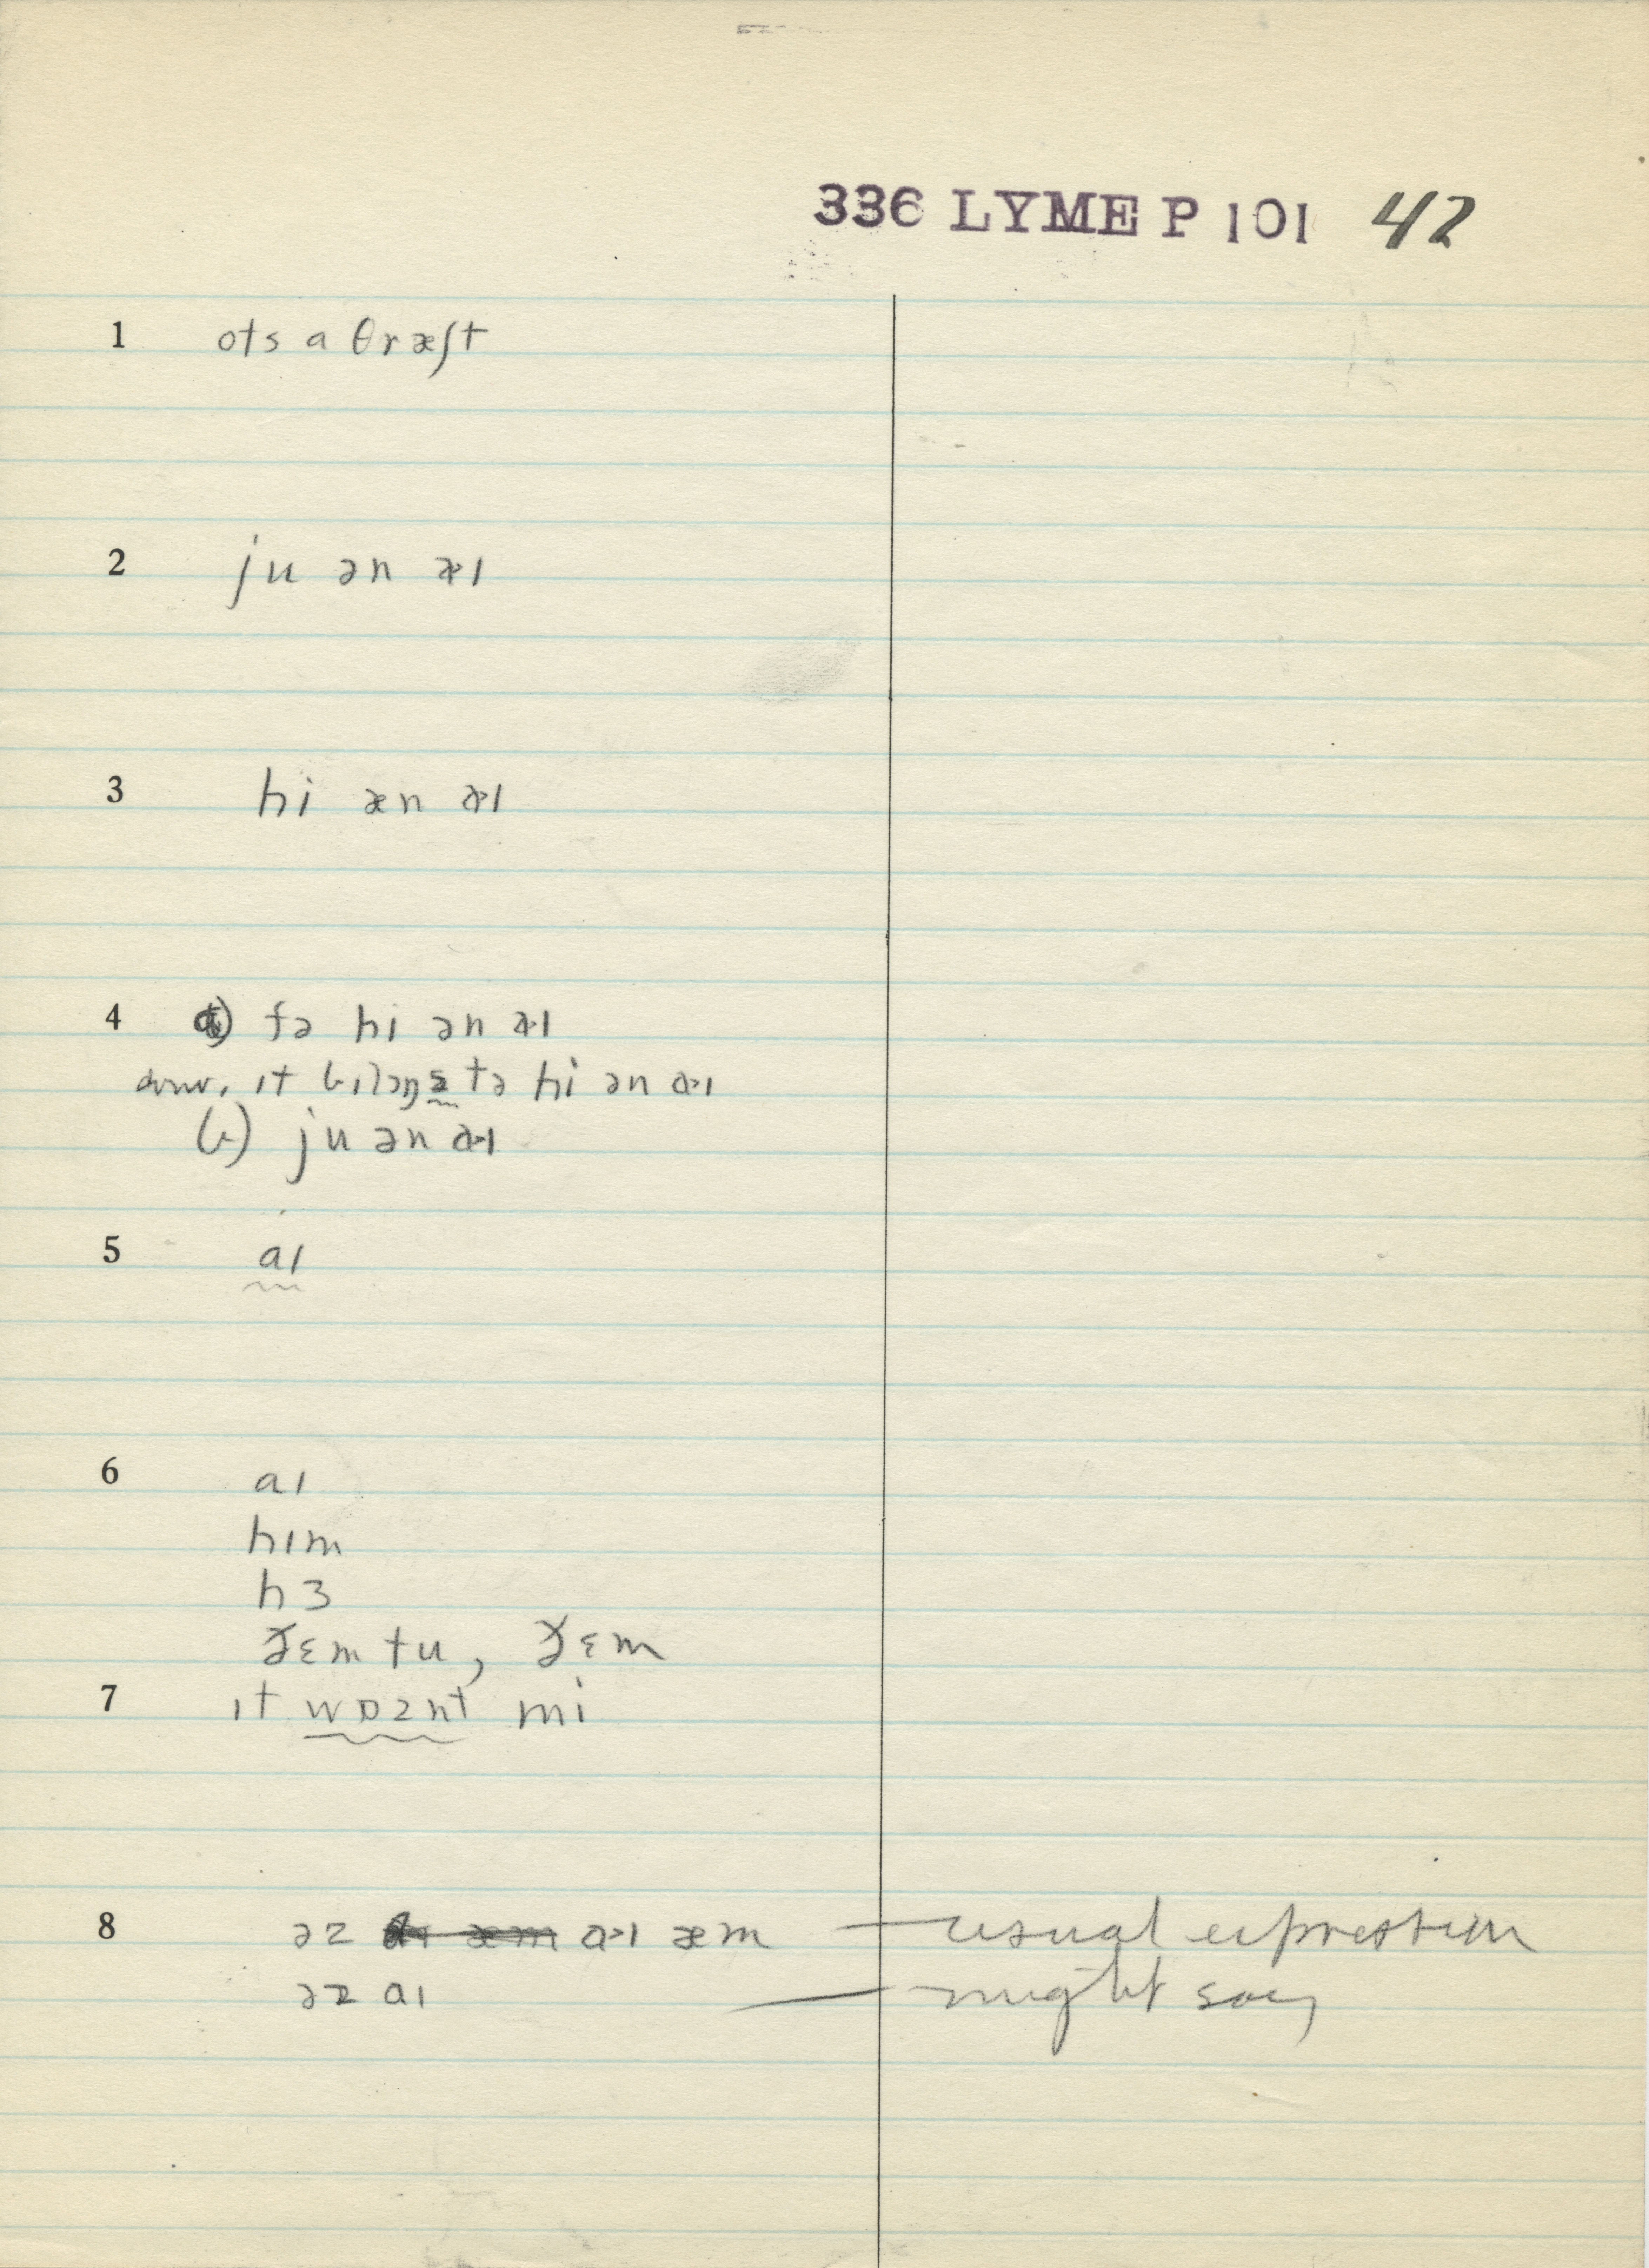 336 LYME P 101 42
1 ots a θræʃt
2 ju ən aɪ
3 hi æn a·ɪ
4 a) fə hi ən a·ɪ
ɪt bɪlɔŋz tə hi ən a·ɪ
(b) ju ən a·ɪ
5 aɪ
6 aɪ
hɪm
hɜ
ðɛm tu, ðɛm
7 ɪt wɒznt mi
8 əz a·ɪ æm — usual expression
əz aɪ — might say